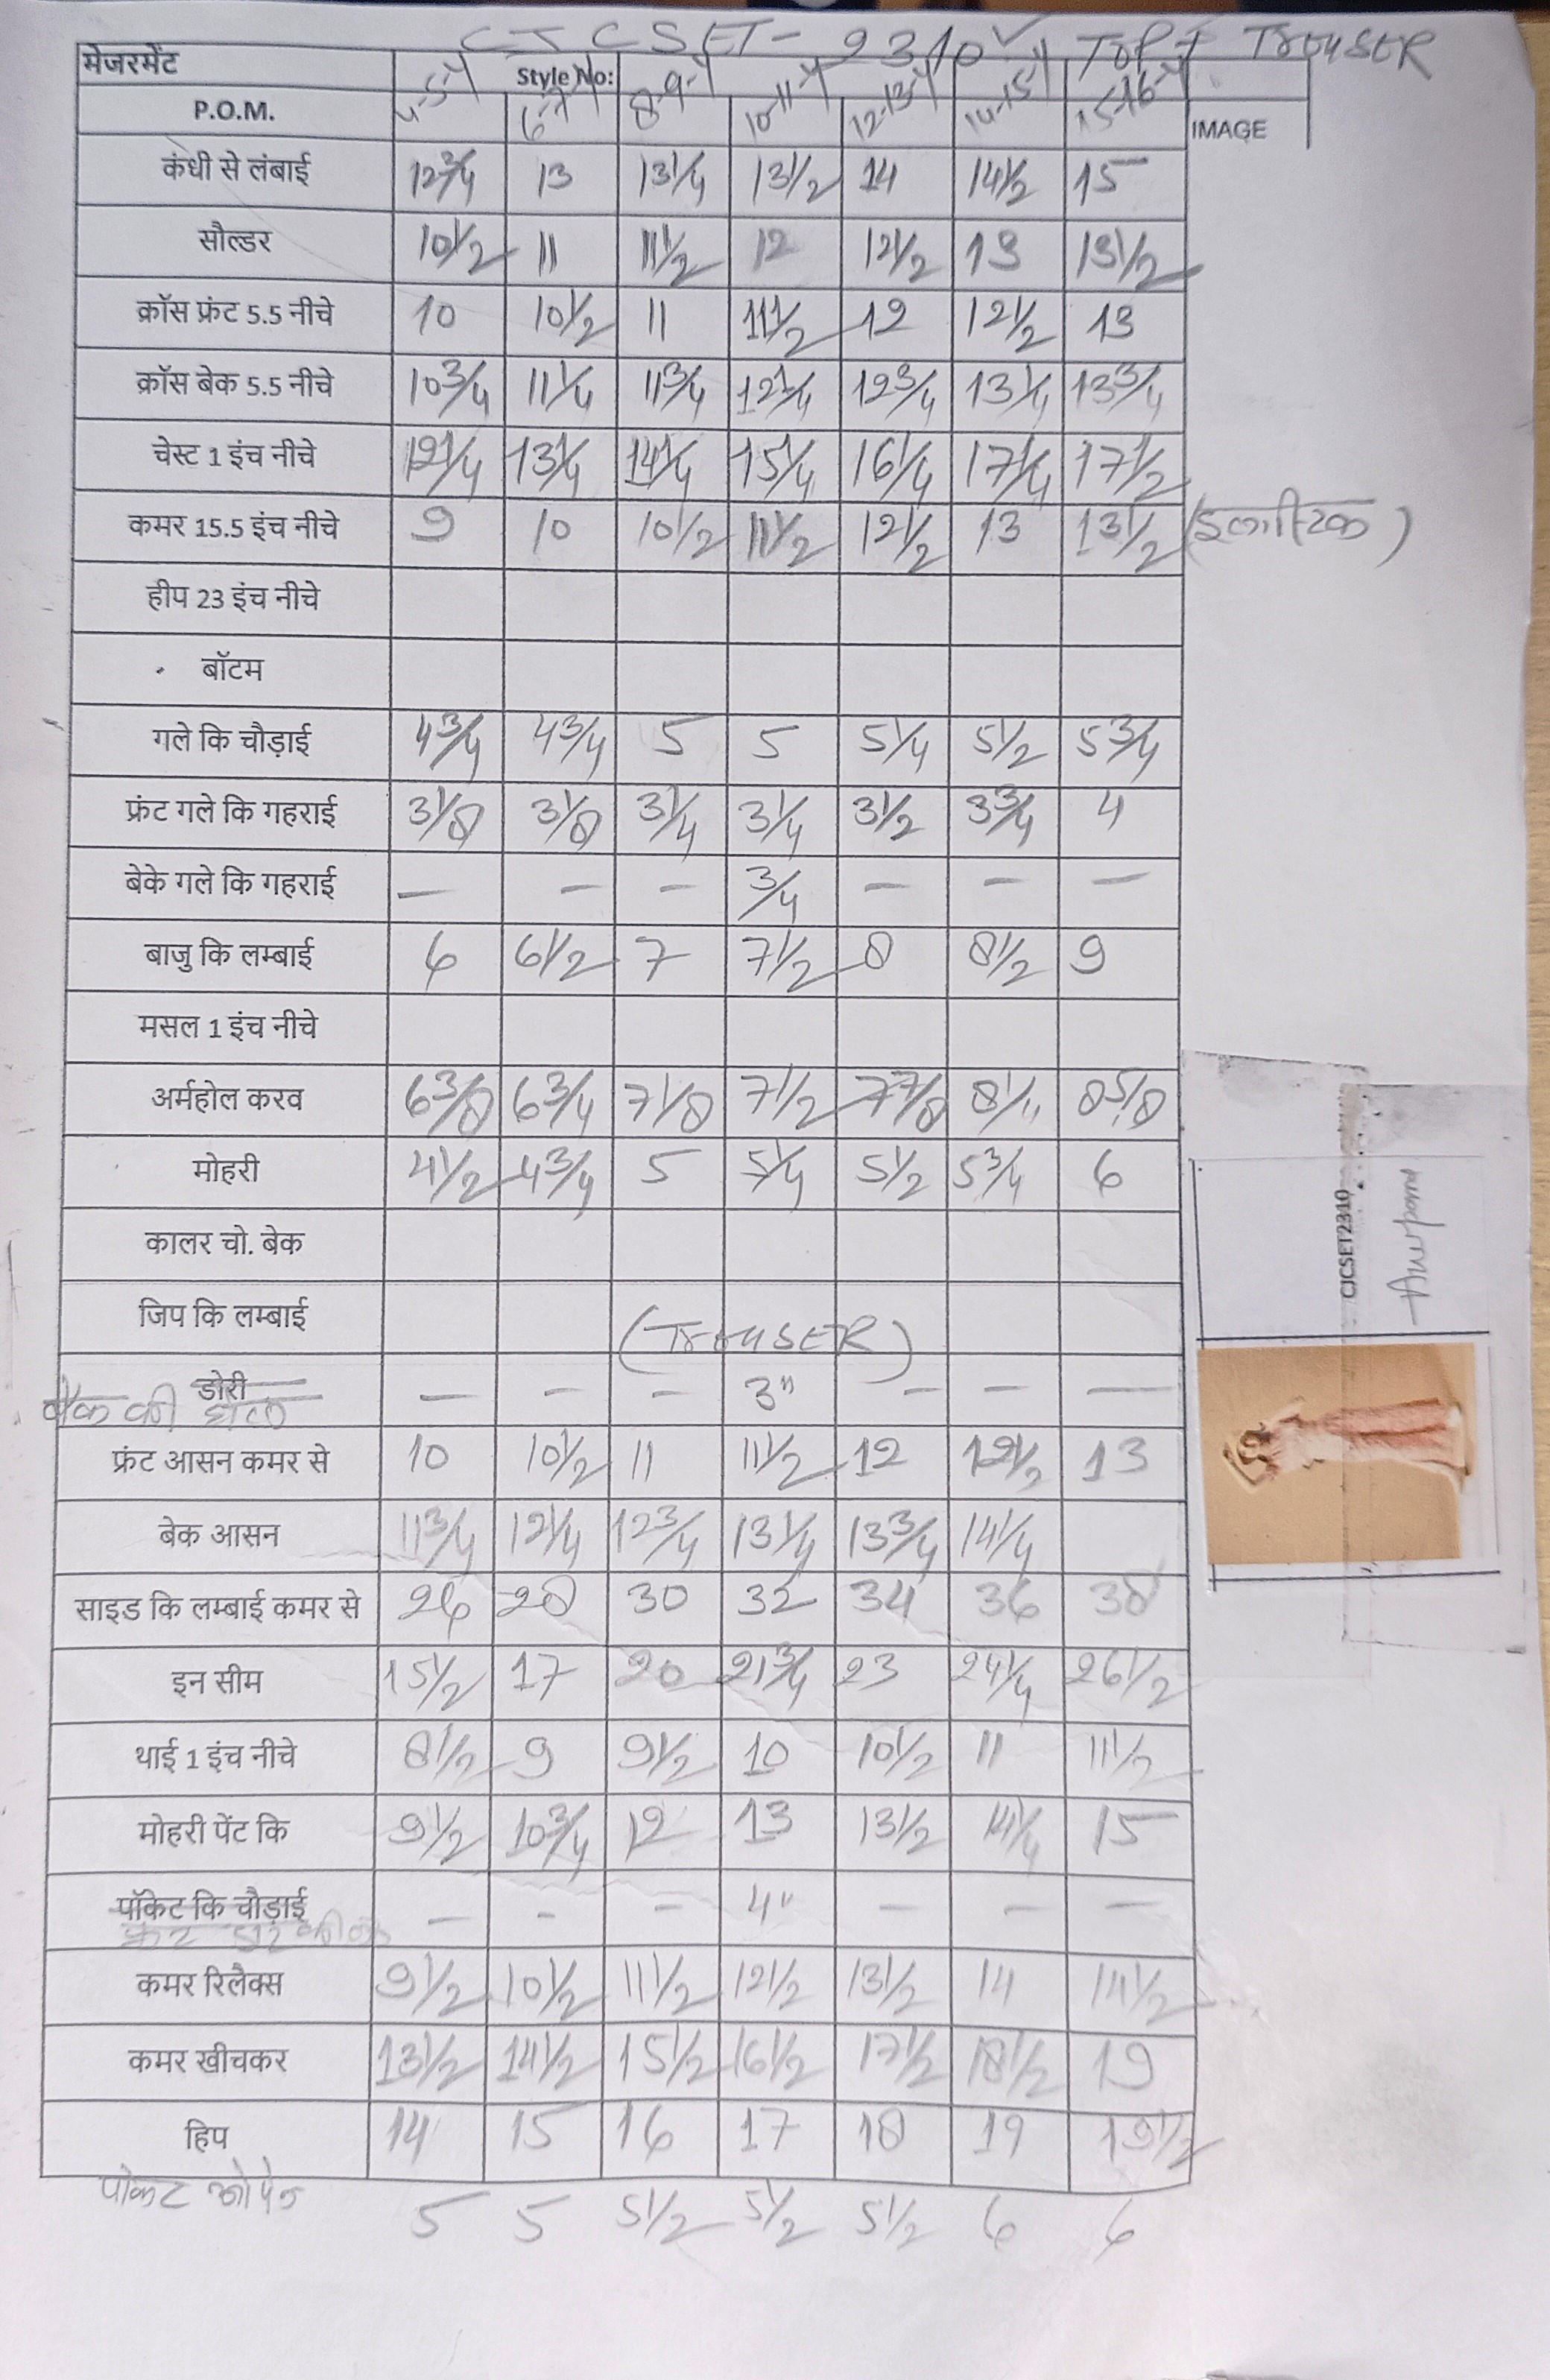 CJCSET-2310 ✓ TOP + TROUSER
मेजरमेंट Style No:
P.O.M. 4-5-Y 6-7-Y 8-9-Y 10-11-Y 12-13-Y 14-15-Y 15-16-Y IMAGE
कंधी से लंबाई 12 3/4 13 13 1/4 13 1/2 14 14 1/2 15
सौल्डर 10 1/2 11 11 1/2 12 12 1/2 13 13 1/2
क्रॉस फ्रंट 5.5 नीचे 10 10 1/2 11 11 1/2 12 12 1/2 13
क्रॉस बेक 5.5 नीचे 10 3/4 11 1/4 11 3/4 12 1/4 12 3/4 13 1/4 13 3/4
चेस्ट 1 इंच नीचे 12 1/4 13 1/4 14 1/4 15 1/4 16 1/4 17 1/4 17 1/2
कमर 15.5 इंच नीचे 9 10 10 1/2 11 1/2 12 1/2 13 13 1/2 (इलास्टिक)
हीप 23 इंच नीचे
बॉटम
गले कि चौड़ाई 4 3/4 4 3/4 5 5 5 1/4 5 1/2 5 3/4
फ्रंट गले कि गहराई 3 1/8 3 1/8 3 1/4 3 1/4 3 1/2 3 3/4 4
बेके गले कि गहराई — — — 3/4 — — —
बाजु कि लम्बाई 6 6 1/2 7 7 1/2 8 8 1/2 9
मसल 1 इंच नीचे
अर्महोल करव 6 3/8 6 3/4 7 1/8 7 1/2 7 7/8 8 1/4 8 5/8
मोहरी 4 1/2 4 3/4 5 5 1/4 5 1/2 5 3/4 6
कालर चो. बेक
जिप कि लम्बाई
(TROUSER)
डोरी — — — 3" — — —
बैक की
फ्रंट आसन कमर से 10 10 1/2 11 11 1/2 12 12 1/2 13
बेक आसन 11 3/4 12 1/4 12 3/4 13 1/4 13 3/4 14 1/4
साइड कि लम्बाई कमर से 26 28 30 32 34 36 38
इन सीम 15 1/2 17 20 21 3/4 23 24 1/4 26 1/2
थाई 1 इंच नीचे 8 1/2 9 9 1/2 10 10 1/2 11 11 1/2
मोहरी पेंट कि 9 1/2 10 3/4 12 13 13 1/2 14 1/4 15
पॉकेट कि चौड़ाई — - — 4" — — —
कमर रिलैक्स 9 1/2 10 1/2 11 1/2 12 1/2 13 1/2 14 14 1/2
कमर खीचकर 13 1/2 14 1/2 15 1/2 16 1/2 17 1/2 18 1/2 19
हिप 14 15 16 17 18 19 19 1/2
पोकट ओपेन 5 5 5 1/2 5 1/2 5 1/2 6 6
CJCSET2310
Anupama